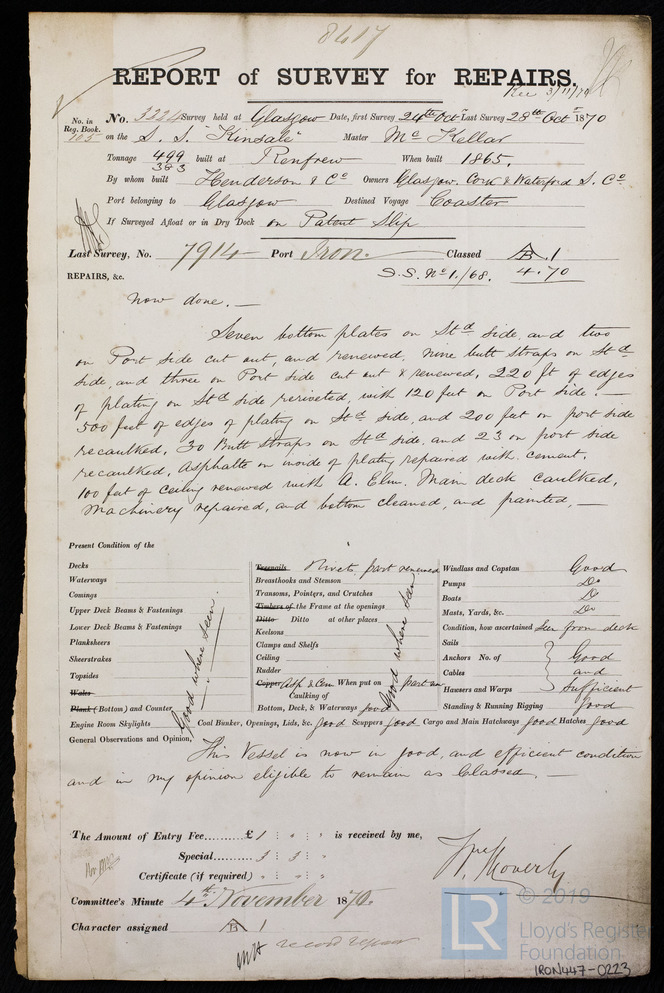 8417
REPORT of SURVEY for REPAIRS.
Rec 3/11/70
No. in Reg. Book. No. 3224 Survey held at Glasgow Date, first Survey 24th Oct Last Survey 28th Oct 1870
105 on the S. S. "Kinsale" Master Mc Kellar
Tonnage 499 383 built at Renfrew When built 1865.
By whom built Henderson & Co Owners Glasgow. Cork & Waterford S. Co
Port belonging to Glasgow Destined Voyage Coaster
If Surveyed Afloat or in Dry Dock on Patent Slip
Last Survey, No. 7914 Port Iron. Classed B. 1
REPAIRS, &c. S.S. No 1./68. 4.70
Now done. —
Seven bottom plates on Std side, and two
on Port side cut out, and renewed, nine butt straps on Std
side, and three on Port side cut out & renewed, 220 ft of edges
of plating on Std side reriveted, with 120 feet on Port side. —
500 feet of edges of plating on Std side, and 200 feet on port side
recaulked, 30 Butt straps on Std side, and 23 on port side
recaulked, Asphalte on inside of plating repaired with cement,
100 feet of ceiling renewed with A. Elm. Main deck caulked,
Machinery repaired, and bottom cleaned, and painted, —
Present Condition of the
Decks
Waterways
Comings
Upper Deck Beams & Fastenings
Lower Deck Beams & Fastenings
Planksheers
Sheerstrakes
Topsides
Wales
Plank (Bottom) and Counter
Good where seen.
Treenails Rivets, part renewed
Breasthooks and Stemson
Transoms, Pointers, and Crutches
Timbers of the Frame at the openings
Ditto Ditto at other places
Keelsons
Clamps and Shelfs
Ceiling
Rudder
Copper Asp & Cem When put on part on
Caulking of
Bottom, Deck, & Waterways good
Good where seen
Windlass and Capstan Good
Pumps Do
Boats Do
Masts, Yards, &c. Do
Condition, how ascertained See from deck
Sails
Anchors No. of Good
Cables and
Hawsers and Warps Sufficient
Standing & Running Rigging Good
Engine Room Skylights Coal Bunker, Openings, Lids, &c. Good Scuppers Good Cargo and Main Hatchways Good Hatches Good
General Observations and Opinion,
This Vessel is now in good, and efficient condition
and in my opinion eligible to remain as Classed. —
The Amount of Entry Fee.......... £ 1 : " : " is received by me,
Special.......... 3 : 3 : "
Certificate (if required) " : " : "
Committee's Minute 4th November 1870.
Character assigned B 1
record repair
© 2019
LR
Lloyd's Register
Foundation
IRON447-0223